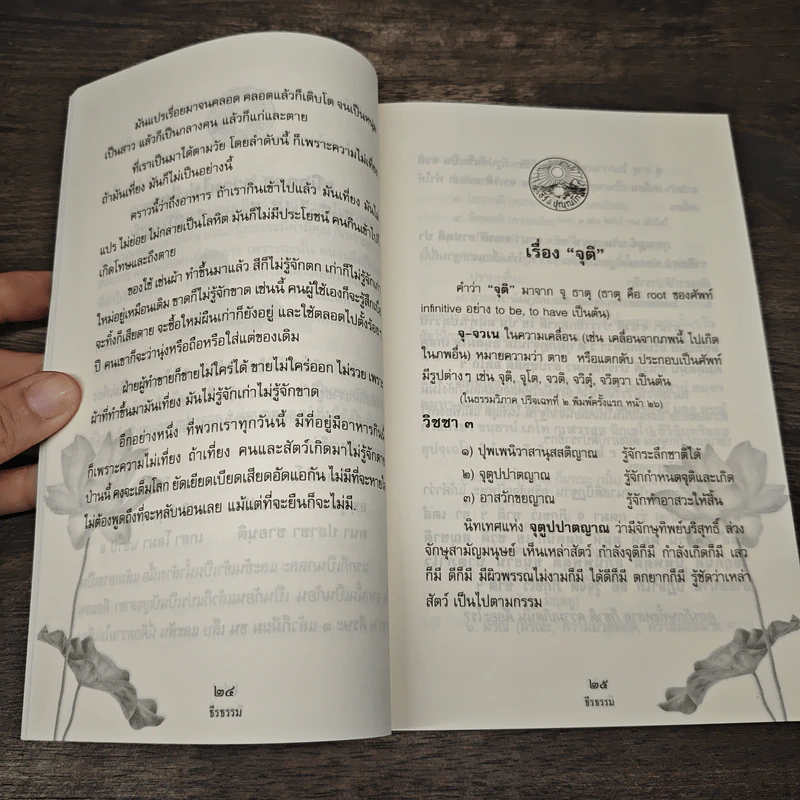 มันแปรเรื่อยมาจนคลอด คลอดแล้วก็เติบโต จนเป็นหนุ่ม
เป็นสาว แล้วก็เป็นกลางคน แล้วก็แก่และตาย
ที่เราเป็นมาได้ตามวัย โดยลำดับนี้ ก็เพราะความไม่เที่ยง
ถ้ามันเที่ยง มันก็ไม่เป็นอย่างนี้
คราวนี้ว่าถึงอาหาร ถ้าเรากินเข้าไปแล้ว มันเที่ยง มันไม่
แปร ไม่ย่อย ไม่กลายเป็นโลหิต มันก็ไม่มีประโยชน์ คนกินเข้าไปก็
เกิดโทษและถึงตาย
ของใช้ เช่นผ้า ทำขึ้นมาแล้ว สีก็ไม่รู้จักตก เก่าก็ไม่รู้จักเก่า
ใหม่อยู่เหมือนเดิม ขาดก็ไม่รู้จักขาด เช่นนี้ คนผู้ใช้เองก็จะรู้สึกเบื่อ
จะทิ้งก็เสียดาย จะซื้อใหม่ผืนเก่าก็ยังอยู่ และใช้ตลอดไปตั้งร้อย
ปี คนเขาก็จะว่านุ่งหรือถือหรือใส่แต่ของเดิม
ฝ่ายผู้ทำขายก็ขายไม่ใคร่ได้ ขายไม่ใคร่ออก ไม่รวย เพราะ
ผ้าที่ทำขึ้นมามันเที่ยง มันไม่รู้จักเก่าไม่รู้จักขาด
อีกอย่างหนึ่ง ที่พวกเราทุกวันนี้ มีที่อยู่มีอาหารกิน
ก็เพราะความไม่เที่ยง ถ้าเที่ยง คนและสัตว์เกิดมาไม่รู้จักตาย
ป่านนี้ คงจะเต็มโลก ยัดเยียดเบียดเสียดอัดแอกัน ไม่มีที่จะหายใจ
ไม่ต้องพูดถึงที่จะหลับนอนเลย แม้แต่ที่จะยืนก็จะไม่มี.
๒๔
ธีรธรรม
เรื่อง “จุติ”
คำว่า “จุติ” มาจาก จุ ธาตุ (ธาตุ คือ root ของศัพท์
infinitive อย่าง to be, to have เป็นต้น)
จุ-จวเน ในความเคลื่อน (เช่น เคลื่อนจากภพนี้ ไปเกิด
ในภพอื่น) หมายความว่า ตาย หรือแตกดับ ประกอบเป็นศัพท์
มีรูปต่างๆ เช่น จุติ, จุโต, จวติ, จวิตุํ, จวิตฺวา เป็นต้น
(ในธรรมวิภาค ปริจเฉทที่ ๒ พิมพ์ครั้งแรก หน้า ๒๖)
วิชชา ๓
๑) ปุพเพนิวาสานุสสติญาณ รู้จักระลึกชาติได้
๒) จุตูปปาตญาณ รู้จักกำหนดจุติและเกิด
๓) อาสวักขยญาณ รู้จักทำอาสวะให้สิ้น
นิทเทศแห่ง จุตูปปาตญาณ ว่ามีจักษุทิพย์บริสุทธิ์ ล่วง
จักษุสามัญมนุษย์ เห็นเหล่าสัตว์ กำลังจุติก็มี กำลังเกิดก็มี เลว
ก็มี ดีก็มี มีผิวพรรณไม่งามก็มี ได้ดีก็มี ตกยากก็มี รู้ชัดว่าเหล่า
สัตว์ เป็นไปตามกรรม
๒๕
ธีรธรรม